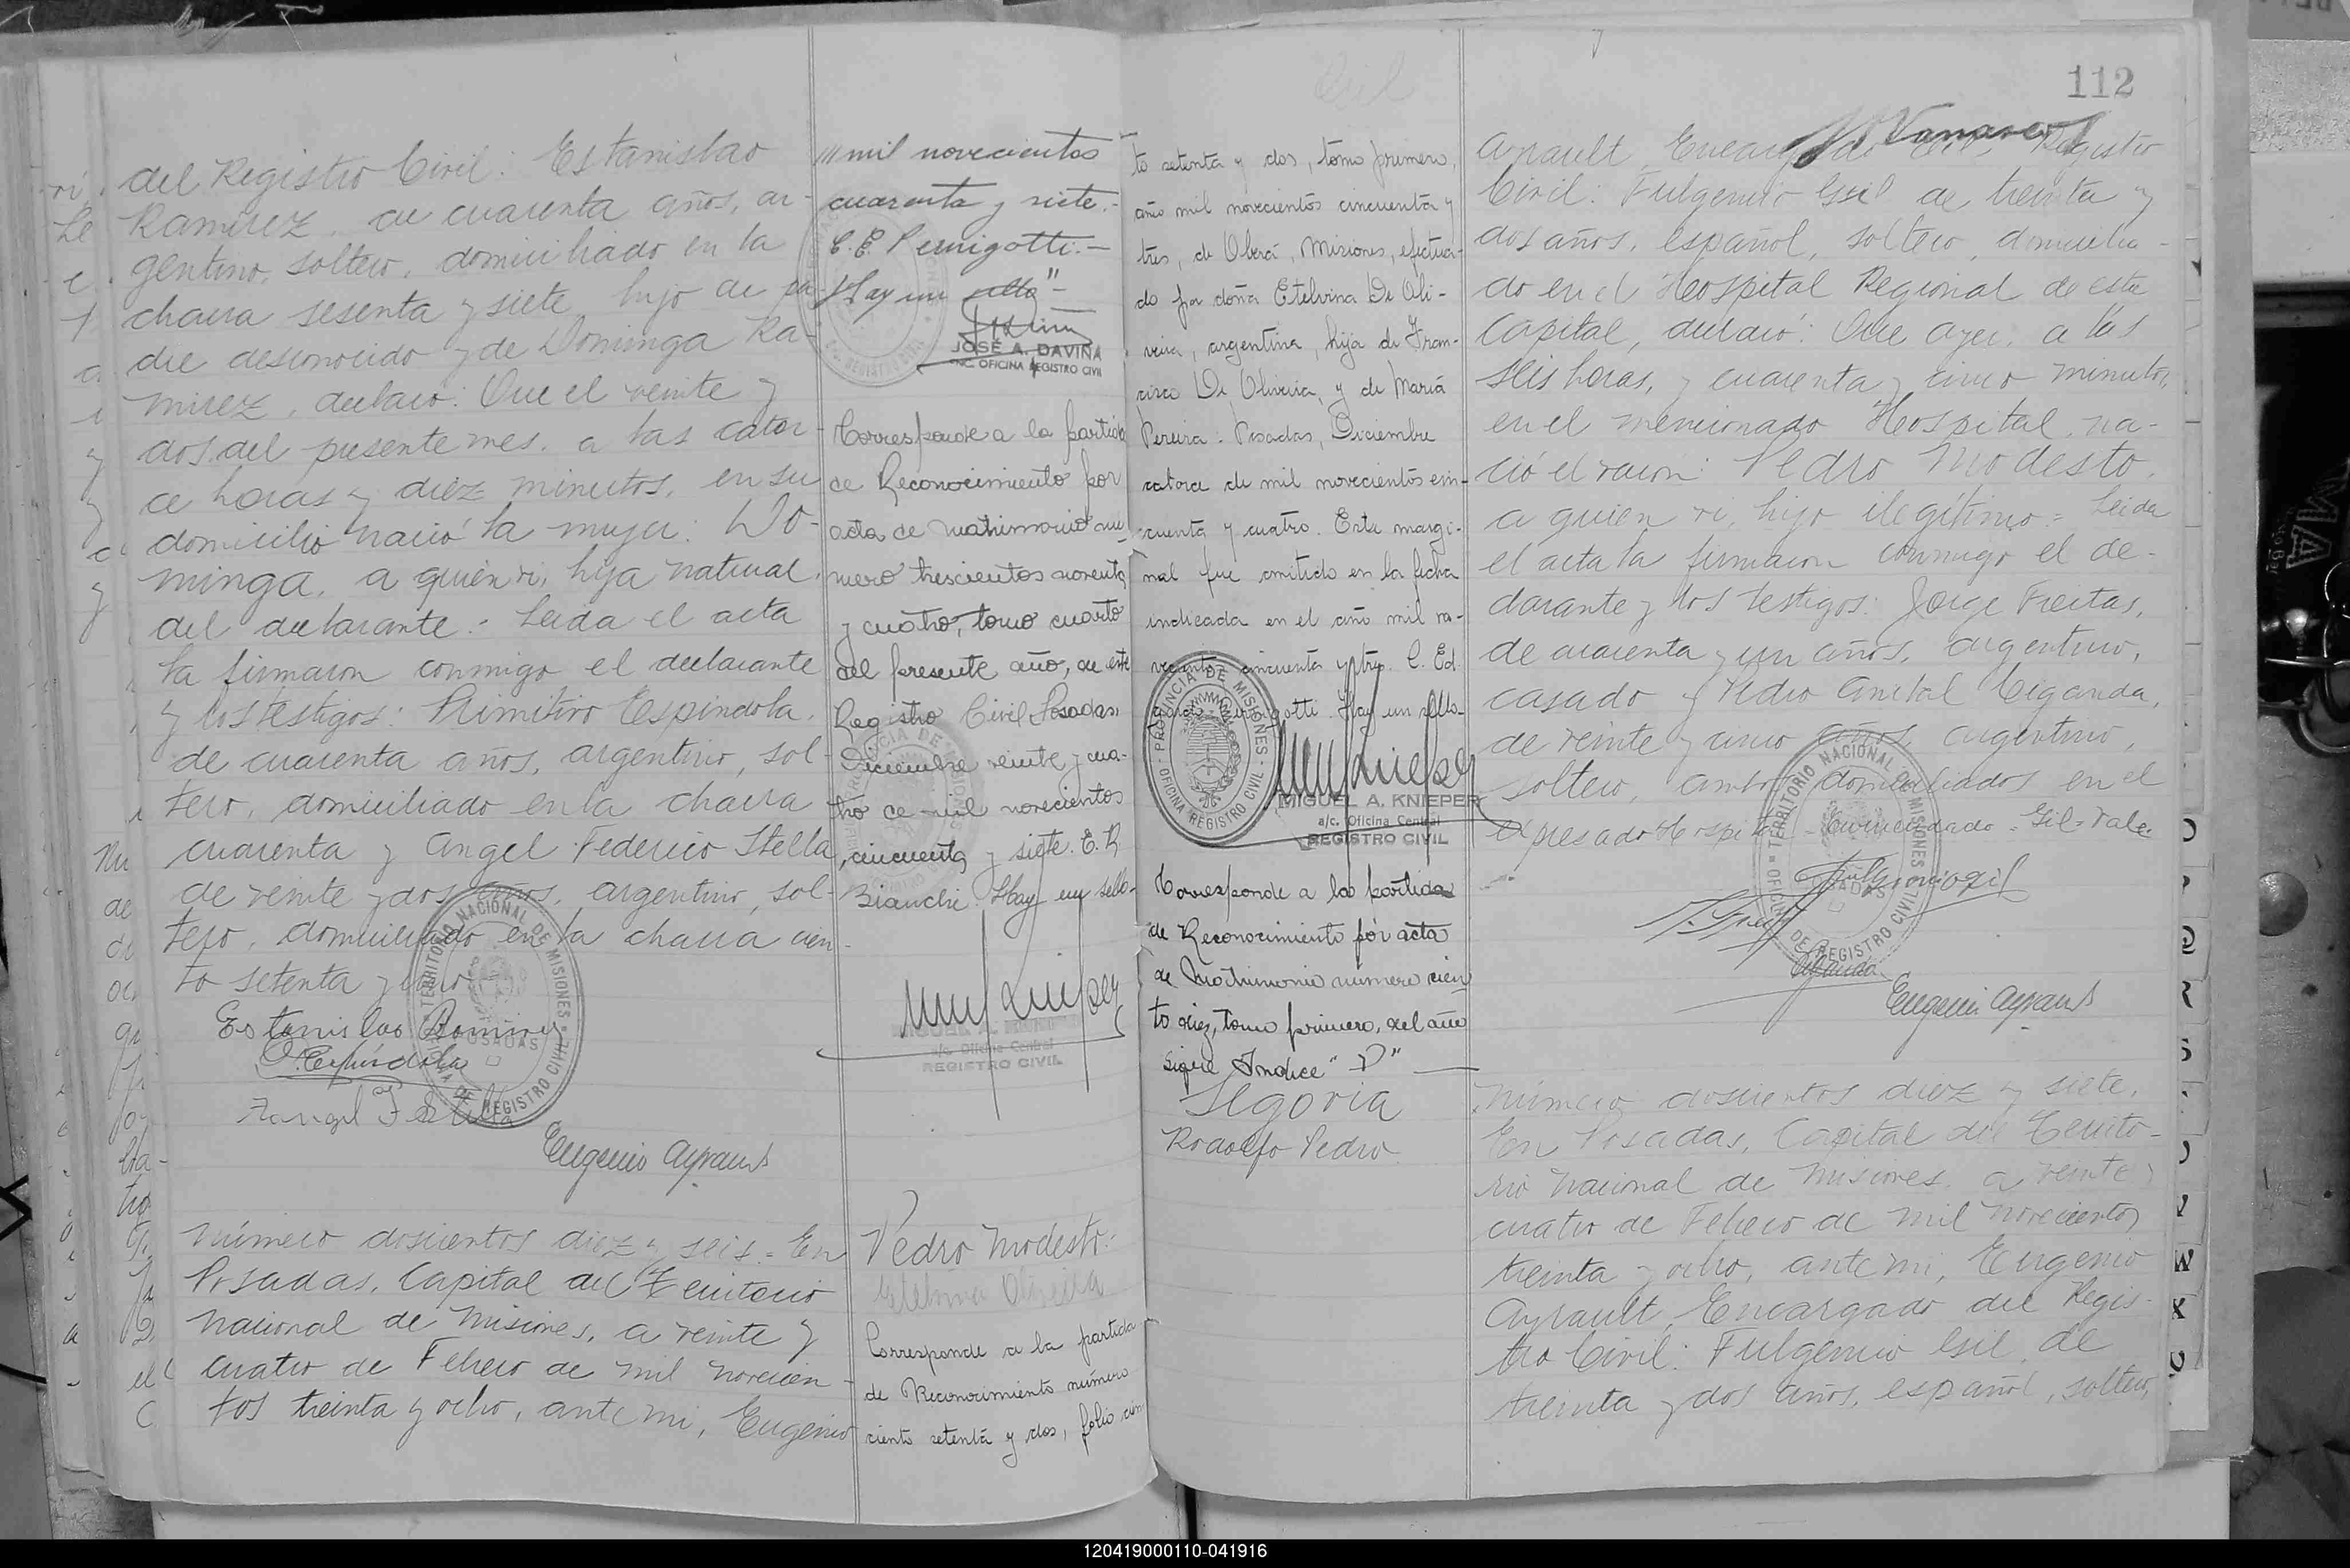 del Registro Civil: Estanislao
Ramirez, de cuarenta años, ar-
gentino, soltero, domiciliado en la
chacra sesenta y siete, hijo de pa-
dre desconocido y de Dominga Ra-
mirez, declaró: Que el veinte y
dos del presente mes, a las cator-
ce horas y diez minutos, en su
domicilio nació la mujer: Do-
minga, a quien vi, hija natural
del declarante.- Leida el acta
la firmaron conmigo el declarante
y los testigos: Primitivo Espindola,
de cuarenta años, argentino, sol-
tero, domiciliado en la chacra
cuarenta y Angel Federico Stella,
de veinte y dos años, argentino, sol-
tero, domiciliado en la chacra cien-
to setenta y cinco
Estanislao Ramirez
P. Espíndola
Angel F Stella
Eugenio Ayrault
TERRITORIO NACIONAL DE MISIONES
OFICINA DE REGISTRO CIVIL
POSADAS
Número doscientos diez y seis.- En
Posadas, Capital del Territorio
Nacional de Misiones, a veinte y
cuatro de Febrero de mil novecien-
tos treinta y ocho, ante mi, Eugenio
mil novecientos
cuarenta y siete.-
C. E. Pernigotti.-
Hay un sello"-
JOSÉ A. DAVIÑA
ENC. OFICINA REGISTRO CIVIL
Corresponde a la partida
de Reconocimiento por
acta de matrimonio nú-
mero trescientos noventa
y cuatro, tomo cuarto
del presente año, de este
Registro Civil Posadas,
Diciembre veinte y cua-
tro de mil novecientos
cincuenta y siete. E. R.
Bianchi. Hay un sello-
a/c. Oficina Central
REGISTRO CIVIL
Pedro Modesto:
Etelvina Oliveira
Corresponde a la partida
de Reconocimiento número
ciento setenta y dos, folio cien-
to setenta y dos, tomo primero,
año mil novecientos cincuenta y
tres, de Oberá, Misiones, efectua-
do por doña Etelvina De Oli-
veira, argentina, hija de Fran-
cisco De Oliveira, y de María
Pereira. Posadas, Diciembre
catorce de mil novecientos cin-
cuenta y cuatro. Esta margi-
nal fue omitida en la fecha
indicada en el año mil no-
vecientos cincuenta y tres. C. Ed.
Pernigotti. Hay un sello-
PROVINCIA DE MISIONES
OFICINA REGISTRO CIVIL
MIGUEL A. KNIEPER
a/c. Oficina Central
REGISTRO CIVIL
Corresponde a la partida
de Reconocimiento por acta
de Matrimonio número cien
to diez, tomo primero, del año
sigue Indice "D"
Segovia
Rodolfo Pedro
Gil
112
Ayrault, Encargado del Registro
Civil: Fulgencio Gil de treinta y
dos años, español, soltero, domicilia-
do en el Hospital Regional de esta
Capital, declaró: Que ayer, a las
seis horas, y cuarenta y cinco minutos,
en el mencionado Hospital, na-
ció el varón: Pedro Modesto,
a quien vi, hijo ilegítimo.- Leida
el acta la firmaron conmigo el de-
clarante y los testigos: Jorge Freitas,
de cuarenta y un años, argentino,
casado y Pedro Anibal Ciganda,
de veinte y cinco años, argentino,
soltero, ambos domiciliados en el
expresado Hospital - Enmendado - Gil - Vale.
Fulgencio Gil
J. Freitas
Ciganda
Eugenio Ayrault
TERRITORIO NACIONAL DE MISIONES
OFICINA DE REGISTRO CIVIL
POSADAS
Número doscientos diez y siete.
En Posadas, Capital del Territo-
rio Nacional de Misiones, a veinte y
cuatro de Febrero de mil novecientos
treinta y ocho, ante mi, Eugenio
Ayrault, Encargado del Regis-
tro Civil: Fulgencio Gil, de
treinta y dos años, español, soltero,
120419000110-041916